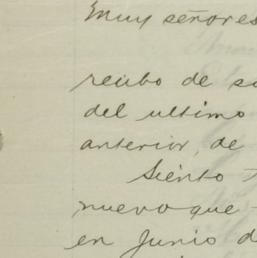 Muy señores
recibo de su
del ultimo
anterior, de
Siento
nuevo que
en Junio d